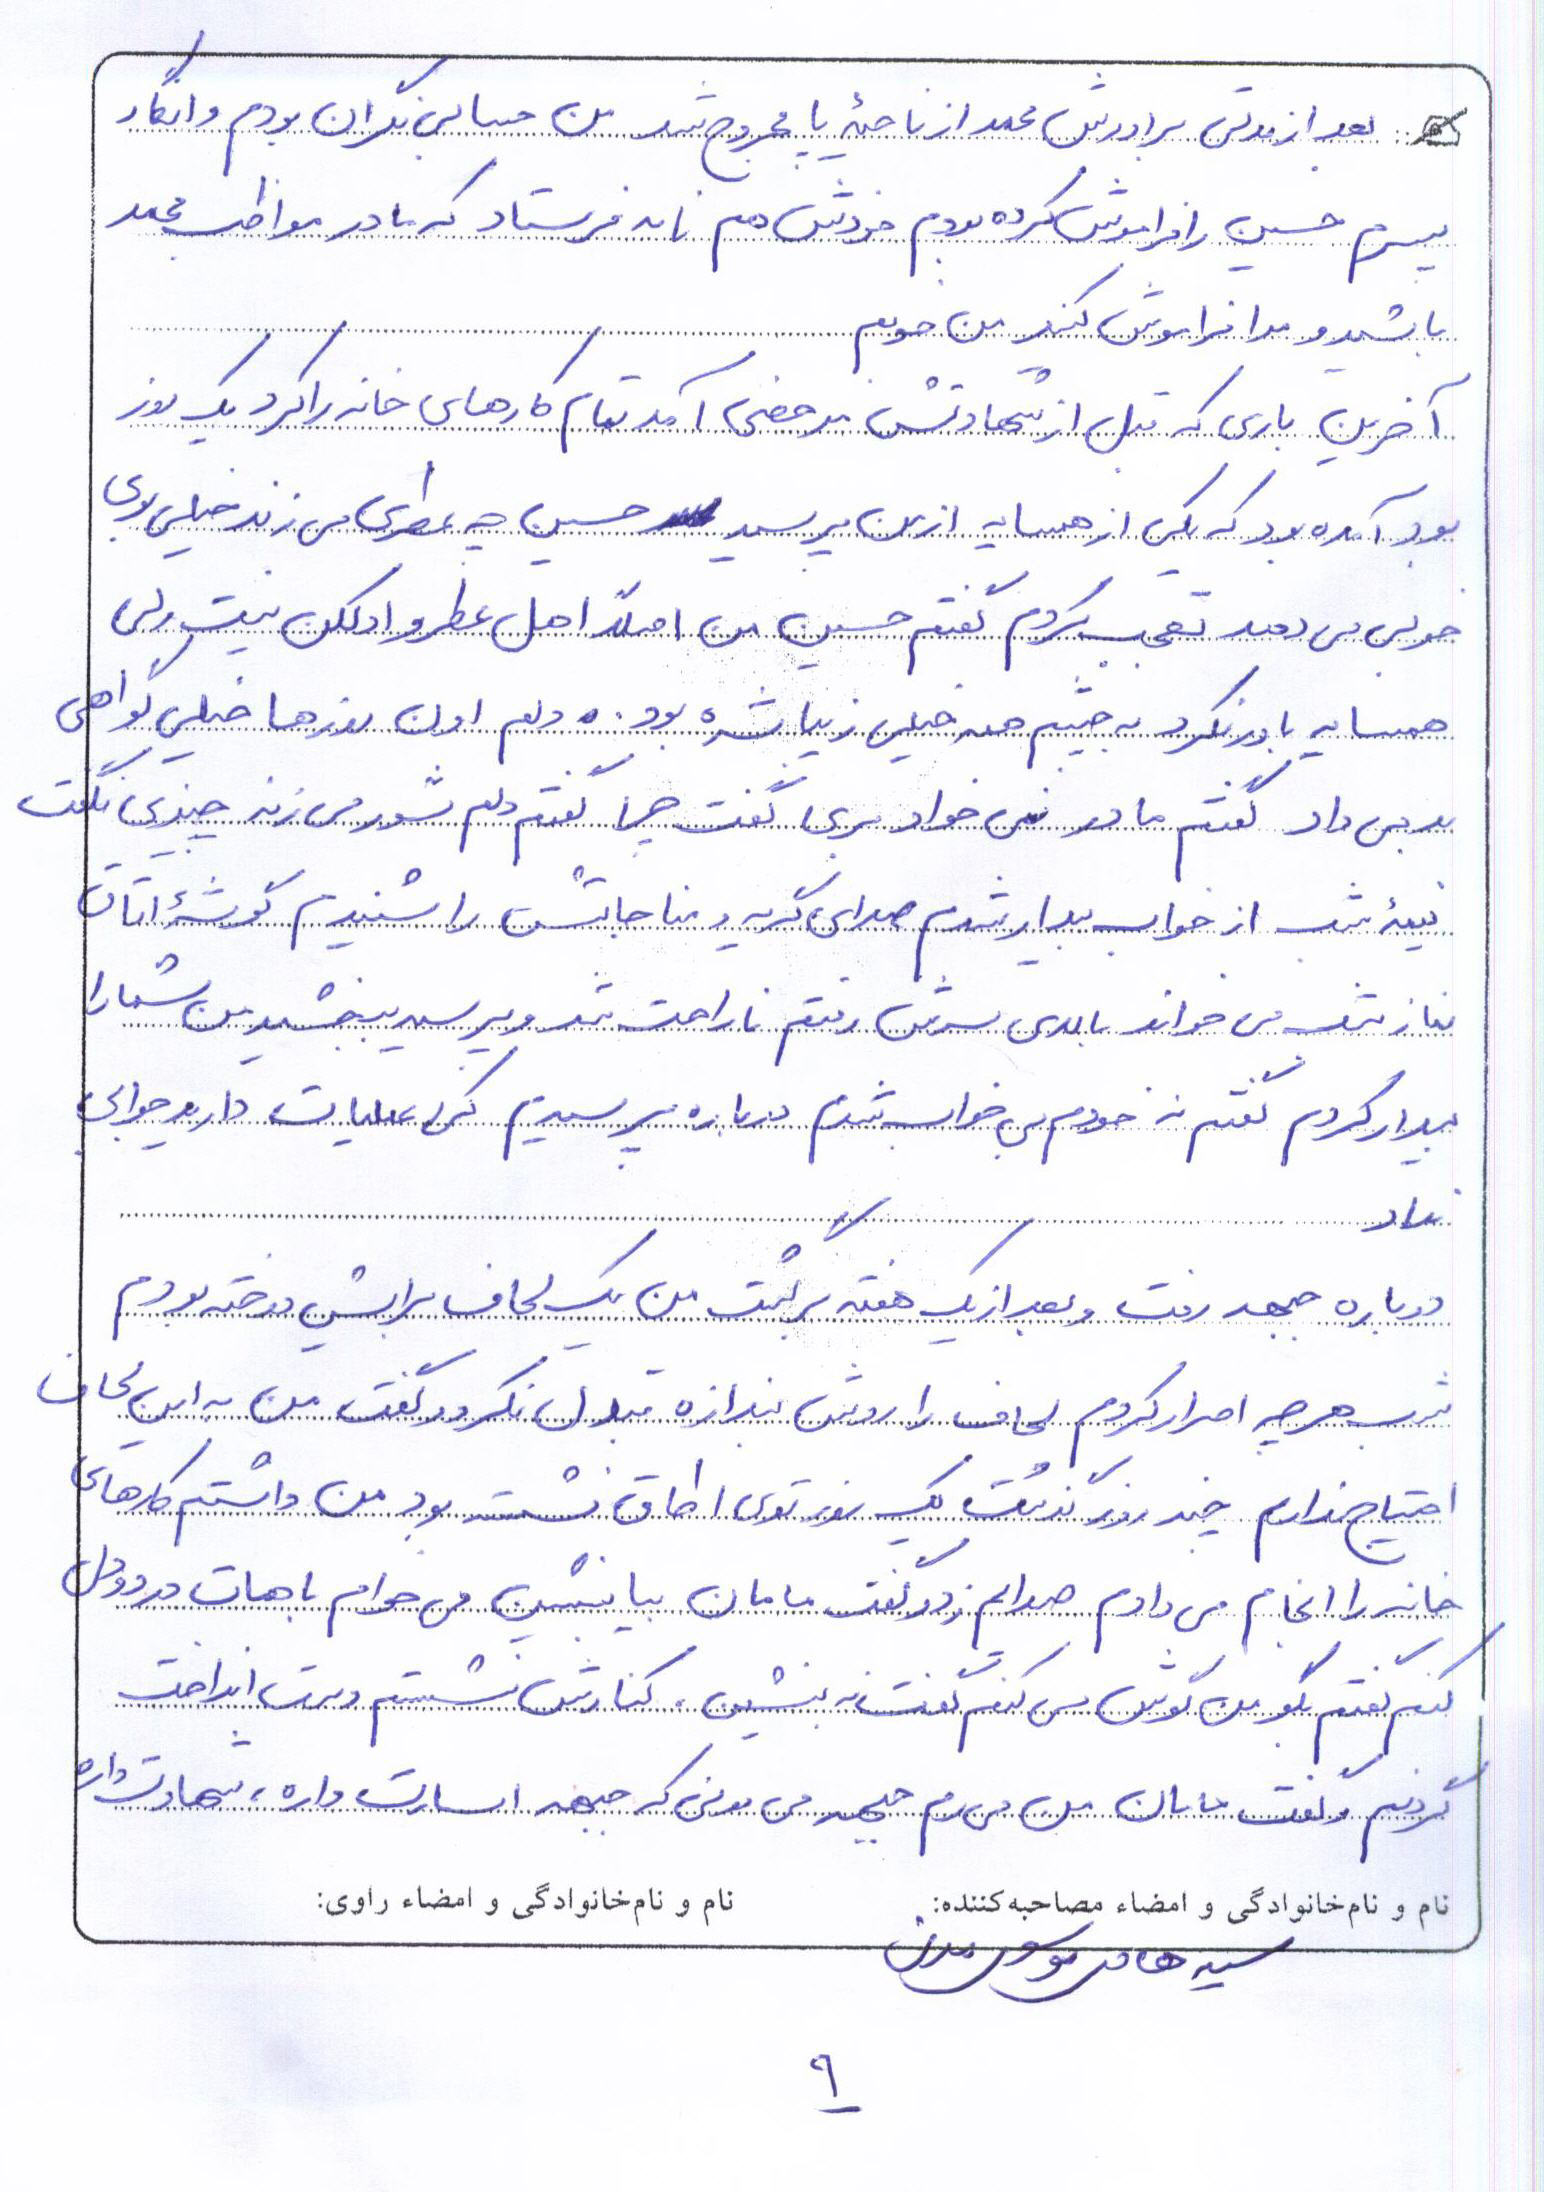 بعد از مدتی برادرش محمد از ناحیهٔ پا مجروح شد من حسابی نگران بودم و انگار
پسرم حسین را فراموش کرده بودم خودش هم نامه فرستاد که مادر مواظب محمد
باشید و مرا فراموش کنید من خوبم
آخرین باری که قبل از شهادتش مرخصی آمد تمام کارهای خانه را کرد یک روز
بود آمده بود که یکی از همسایه از من پرسید حسین چه عطری می زند خیلی بوی
خوبی می دهد تعجب کردم گفتم حسین من اصلاً اهل عطر و ادکلن نیست ولی
همسایه باور نکرد به چشم همه خیلی زیبا شده بود. دلم اون روزها خیلی گواهی
بد می داد گفتم مادر نمی خواد بری گفت چرا گفتم دلم شور می زند چیزی نگفت
نیمهٔ شب از خواب بیدار شدم صدای گریه و مناجاتش را شنیدم گوشهٔ اتاق
نماز شب می خواند بالای سرش رفتم ناراحت شد و پرسید ببخشید من شما را
بیدار کردم گفتم نه خودم بی خواب شدم دوباره پرسیدم کی عملیات دارید جوابی
نداد
دوباره جبهه رفت و بعد از یک هفته برگشت من یک لحاف برایش دوخته بودم
شب هر چه اصرار کردم لحاف را روش بندازه قبول نکرد و گفت من به این لحاف
احتیاج ندارم چند روز گذشت یک روز توی اطاق نشسته بود من داشتم کارهای
خانه را انجام می دادم صدایم زد و گفت مامان بیا بنشین می خوام باهات درد و دل
کنم گفتم بگو من گوش می کنم گفت نه بنشین، کنارش نشستم دست انداخت
گردنم و گفت مامان من می رم جبهه می دونی که جبهه اسارت داره، شهادت داره
نام و نام‌خانوادگی و امضاء مصاحبه‌کننده:
نام و نام‌خانوادگی و امضاء راوی:
موسوی
۹